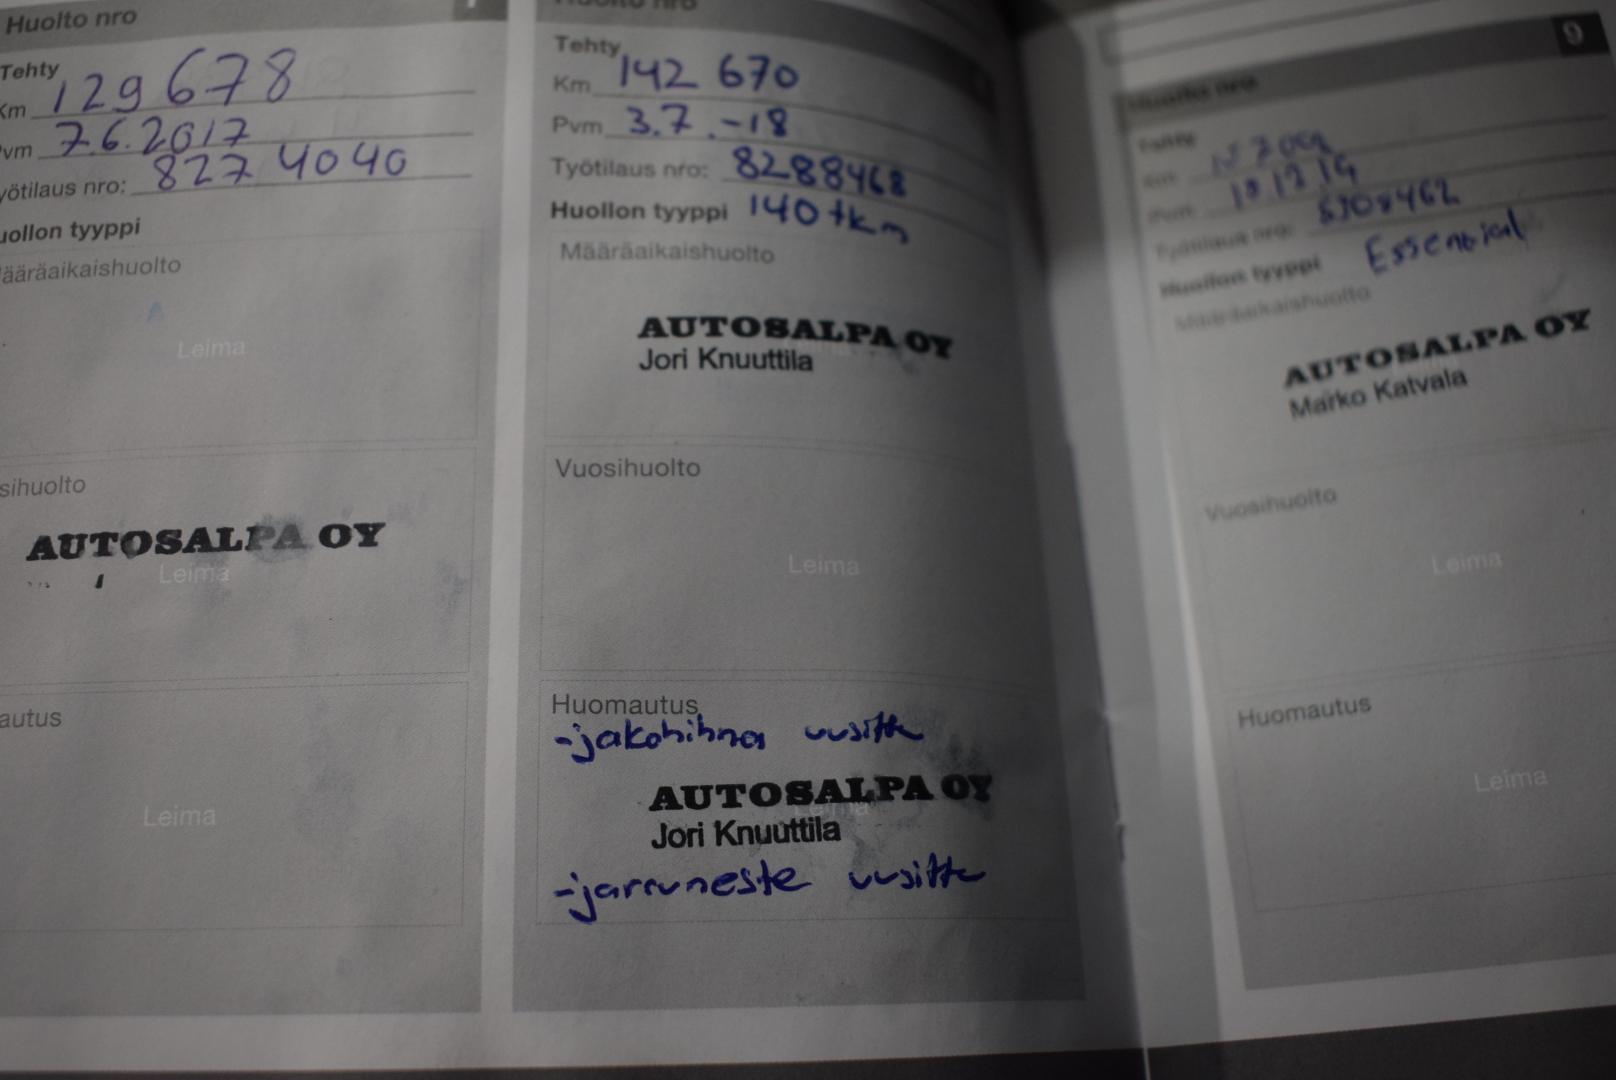 Huolto nro
Tehty
Km 129 678
Pvm 7.6.2017
Työtilaus nro: 827 4040
Huollon tyyppi
Määräaikaishuolto
Leima
Vuosihuolto
AUTOSALPA OY
Leima
Huomautus
Leima
Huolto nro
Tehty
Km 142 670
Pvm 3.7.-18
Työtilaus nro: 8288468
Huollon tyyppi 140 tkm
Määräaikaishuolto
AUTOSALPA OY
Jori Knuuttila
Vuosihuolto
Leima
Huomautus
-jakohihna uusittu
AUTOSALPA OY
Leima
Jori Knuuttila
-jarruneste uusittu
9
Huolto nro
Tehty
Km
Pvm
Työtilaus nro:
Huollon tyyppi Essential
Määräaikaishuolto
AUTOSALPA OY
Marko Katvala
Vuosihuolto
Leima
Huomautus
Leima